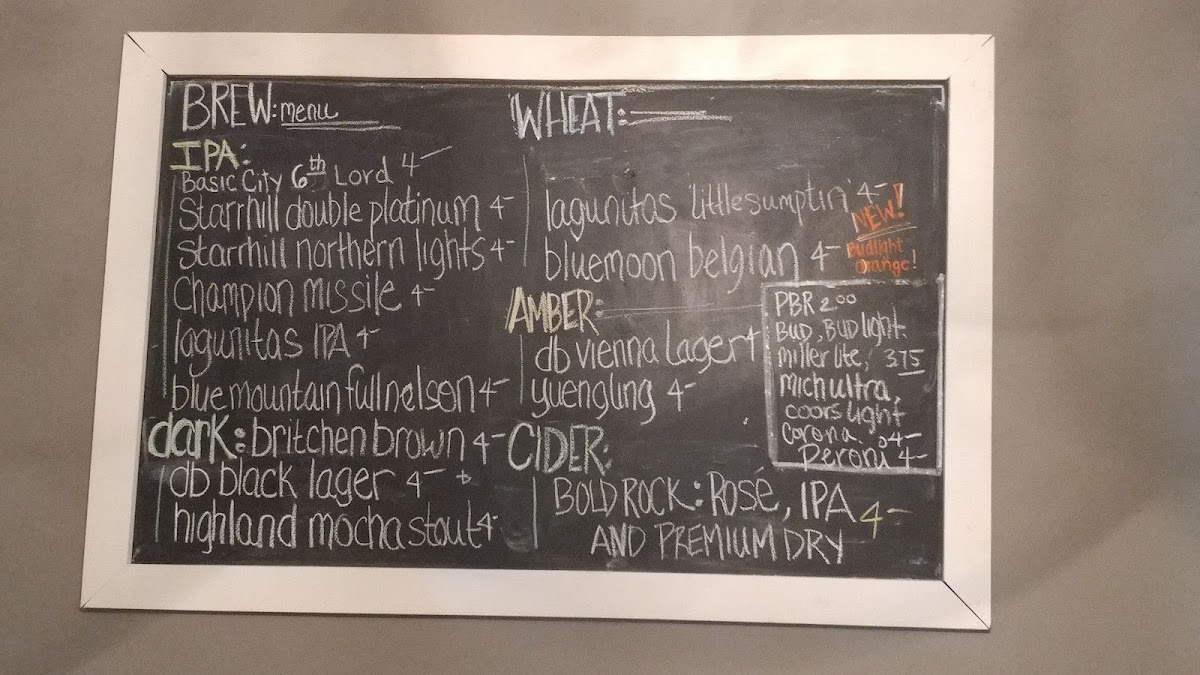 BREW: menu
IPA:
Basic City 6th Lord 4-
Starrhill double platinum 4-
Starrhill northern lights 4-
Champion missile 4-
lagunitas IPA 4-
blue mountain fullnelson 4-
dark: britchen brown 4-
db black lager 4-
highland mocha stout 4-
WHEAT:
lagunitas 'littlesumptin' 4-
bluemoon belgian 4-
NEW!
Budlight
Orange!
AMBER:
db vienna Lager 4-
yuengling 4-
CIDER:
BOLD ROCK: Rosé, IPA 4-
AND PREMIUM DRY
PBR 2.00
BUD, BUD light.
miller lite, 3.75
mich ultra,
coors light
corona. 4-
Peroni 4-